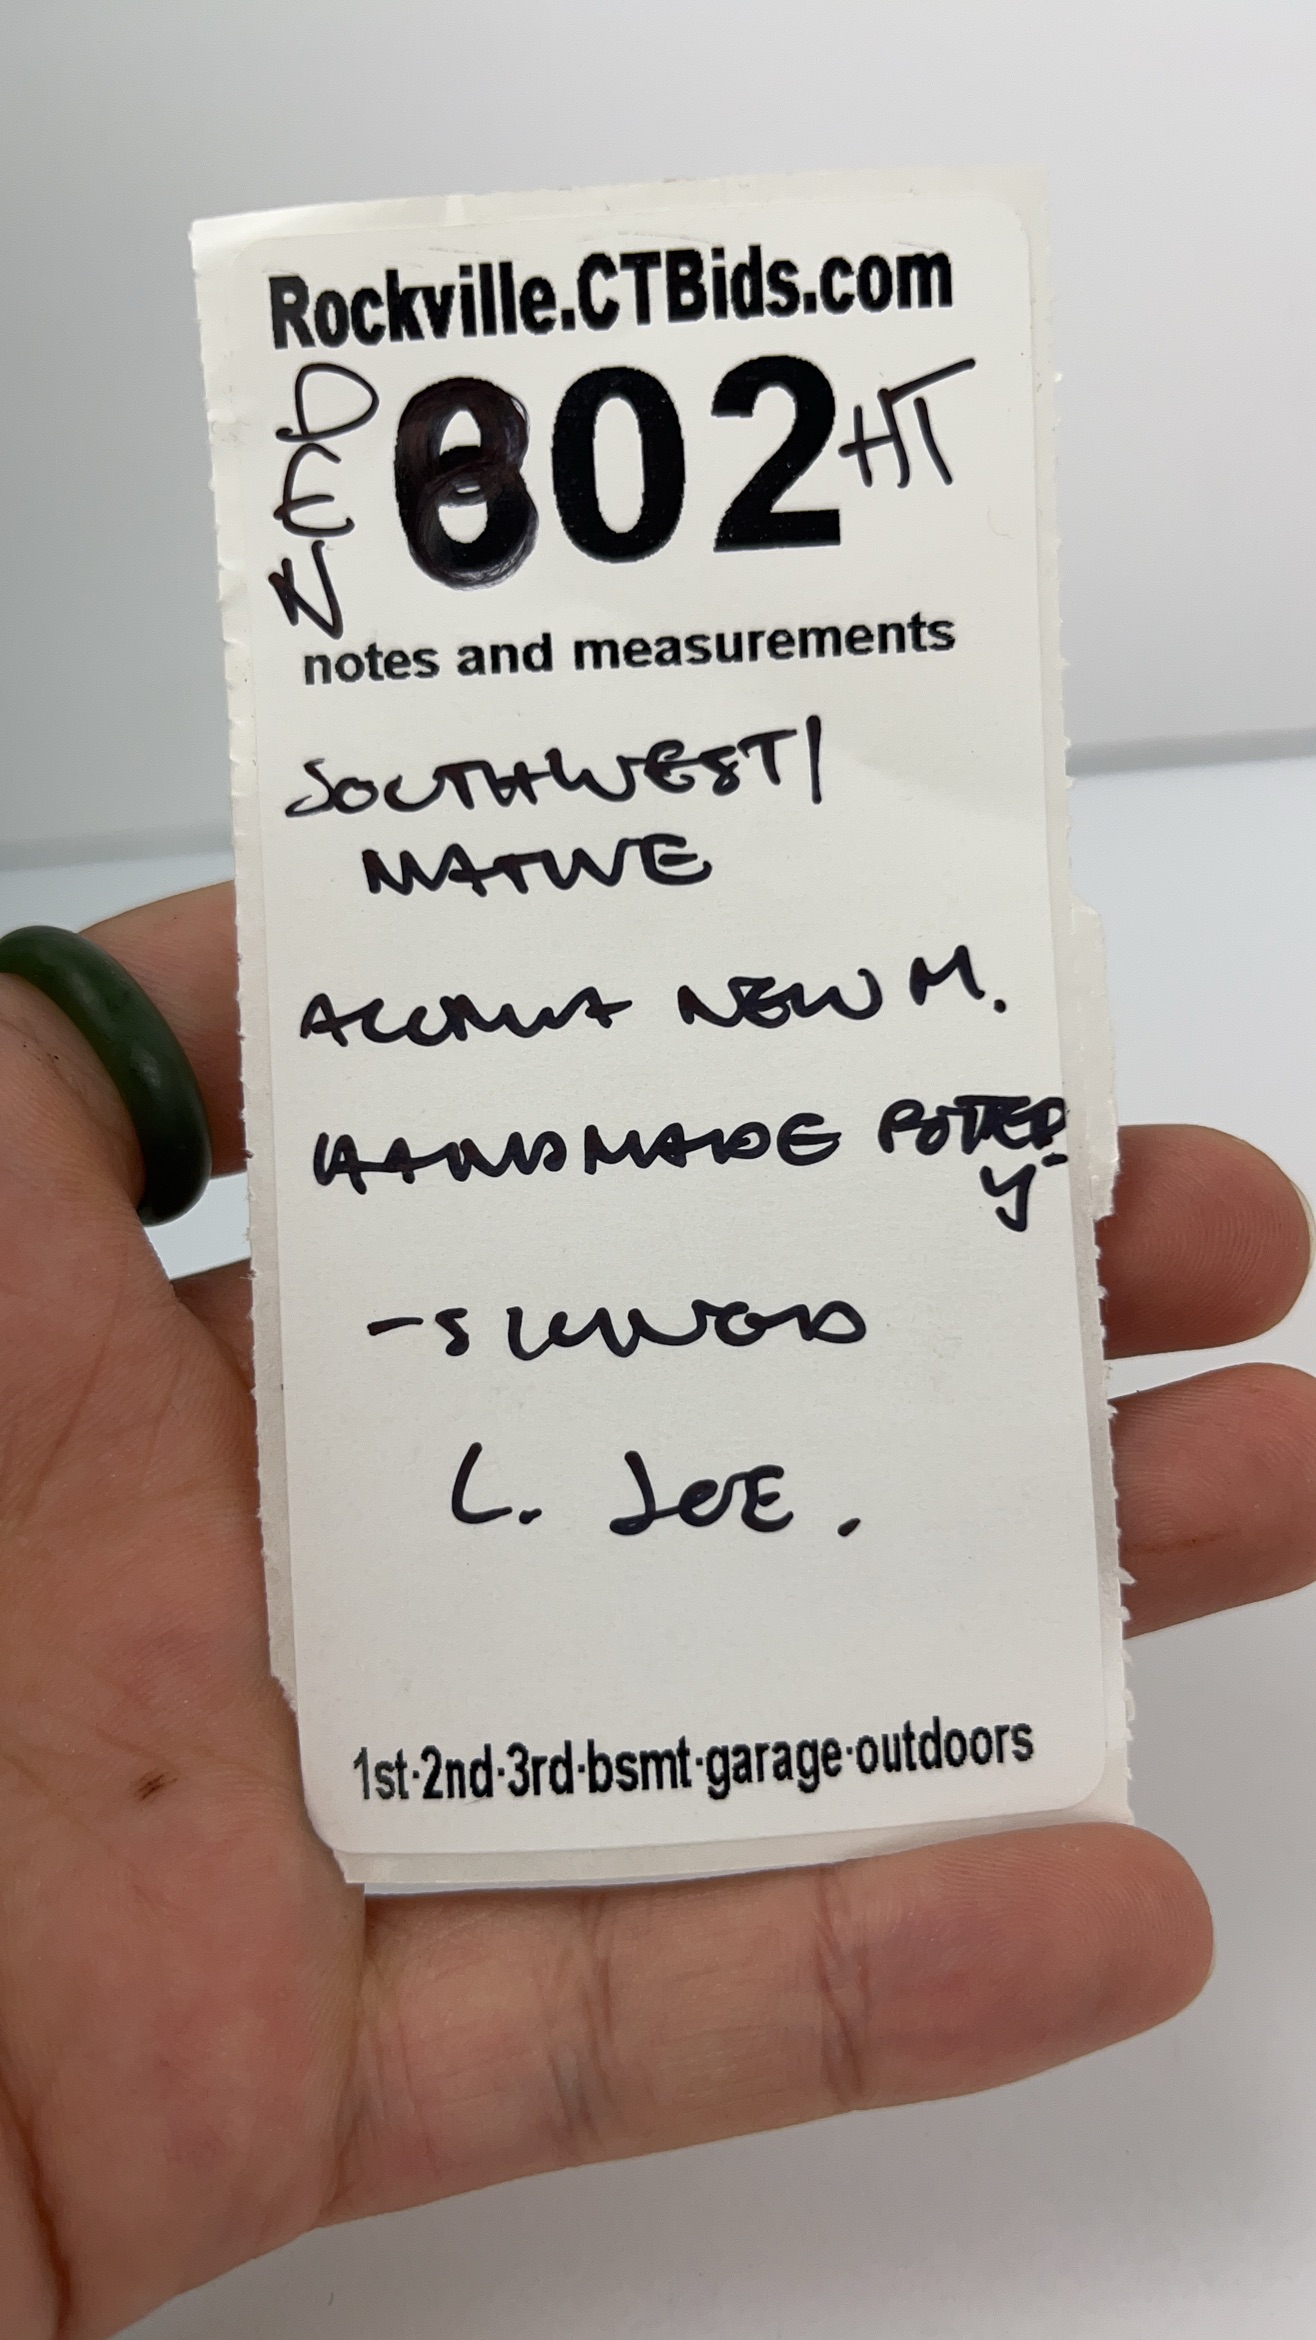 Rockville.CTBids.com
DEN
802 HT
notes and measurements
SOUTHWEST/
NATIVE
ACOMA NEW M.
HANDMADE POTTER
Y
-SIGNED
L. JOE.
1st·2nd·3rd·bsmt·garage·outdoors